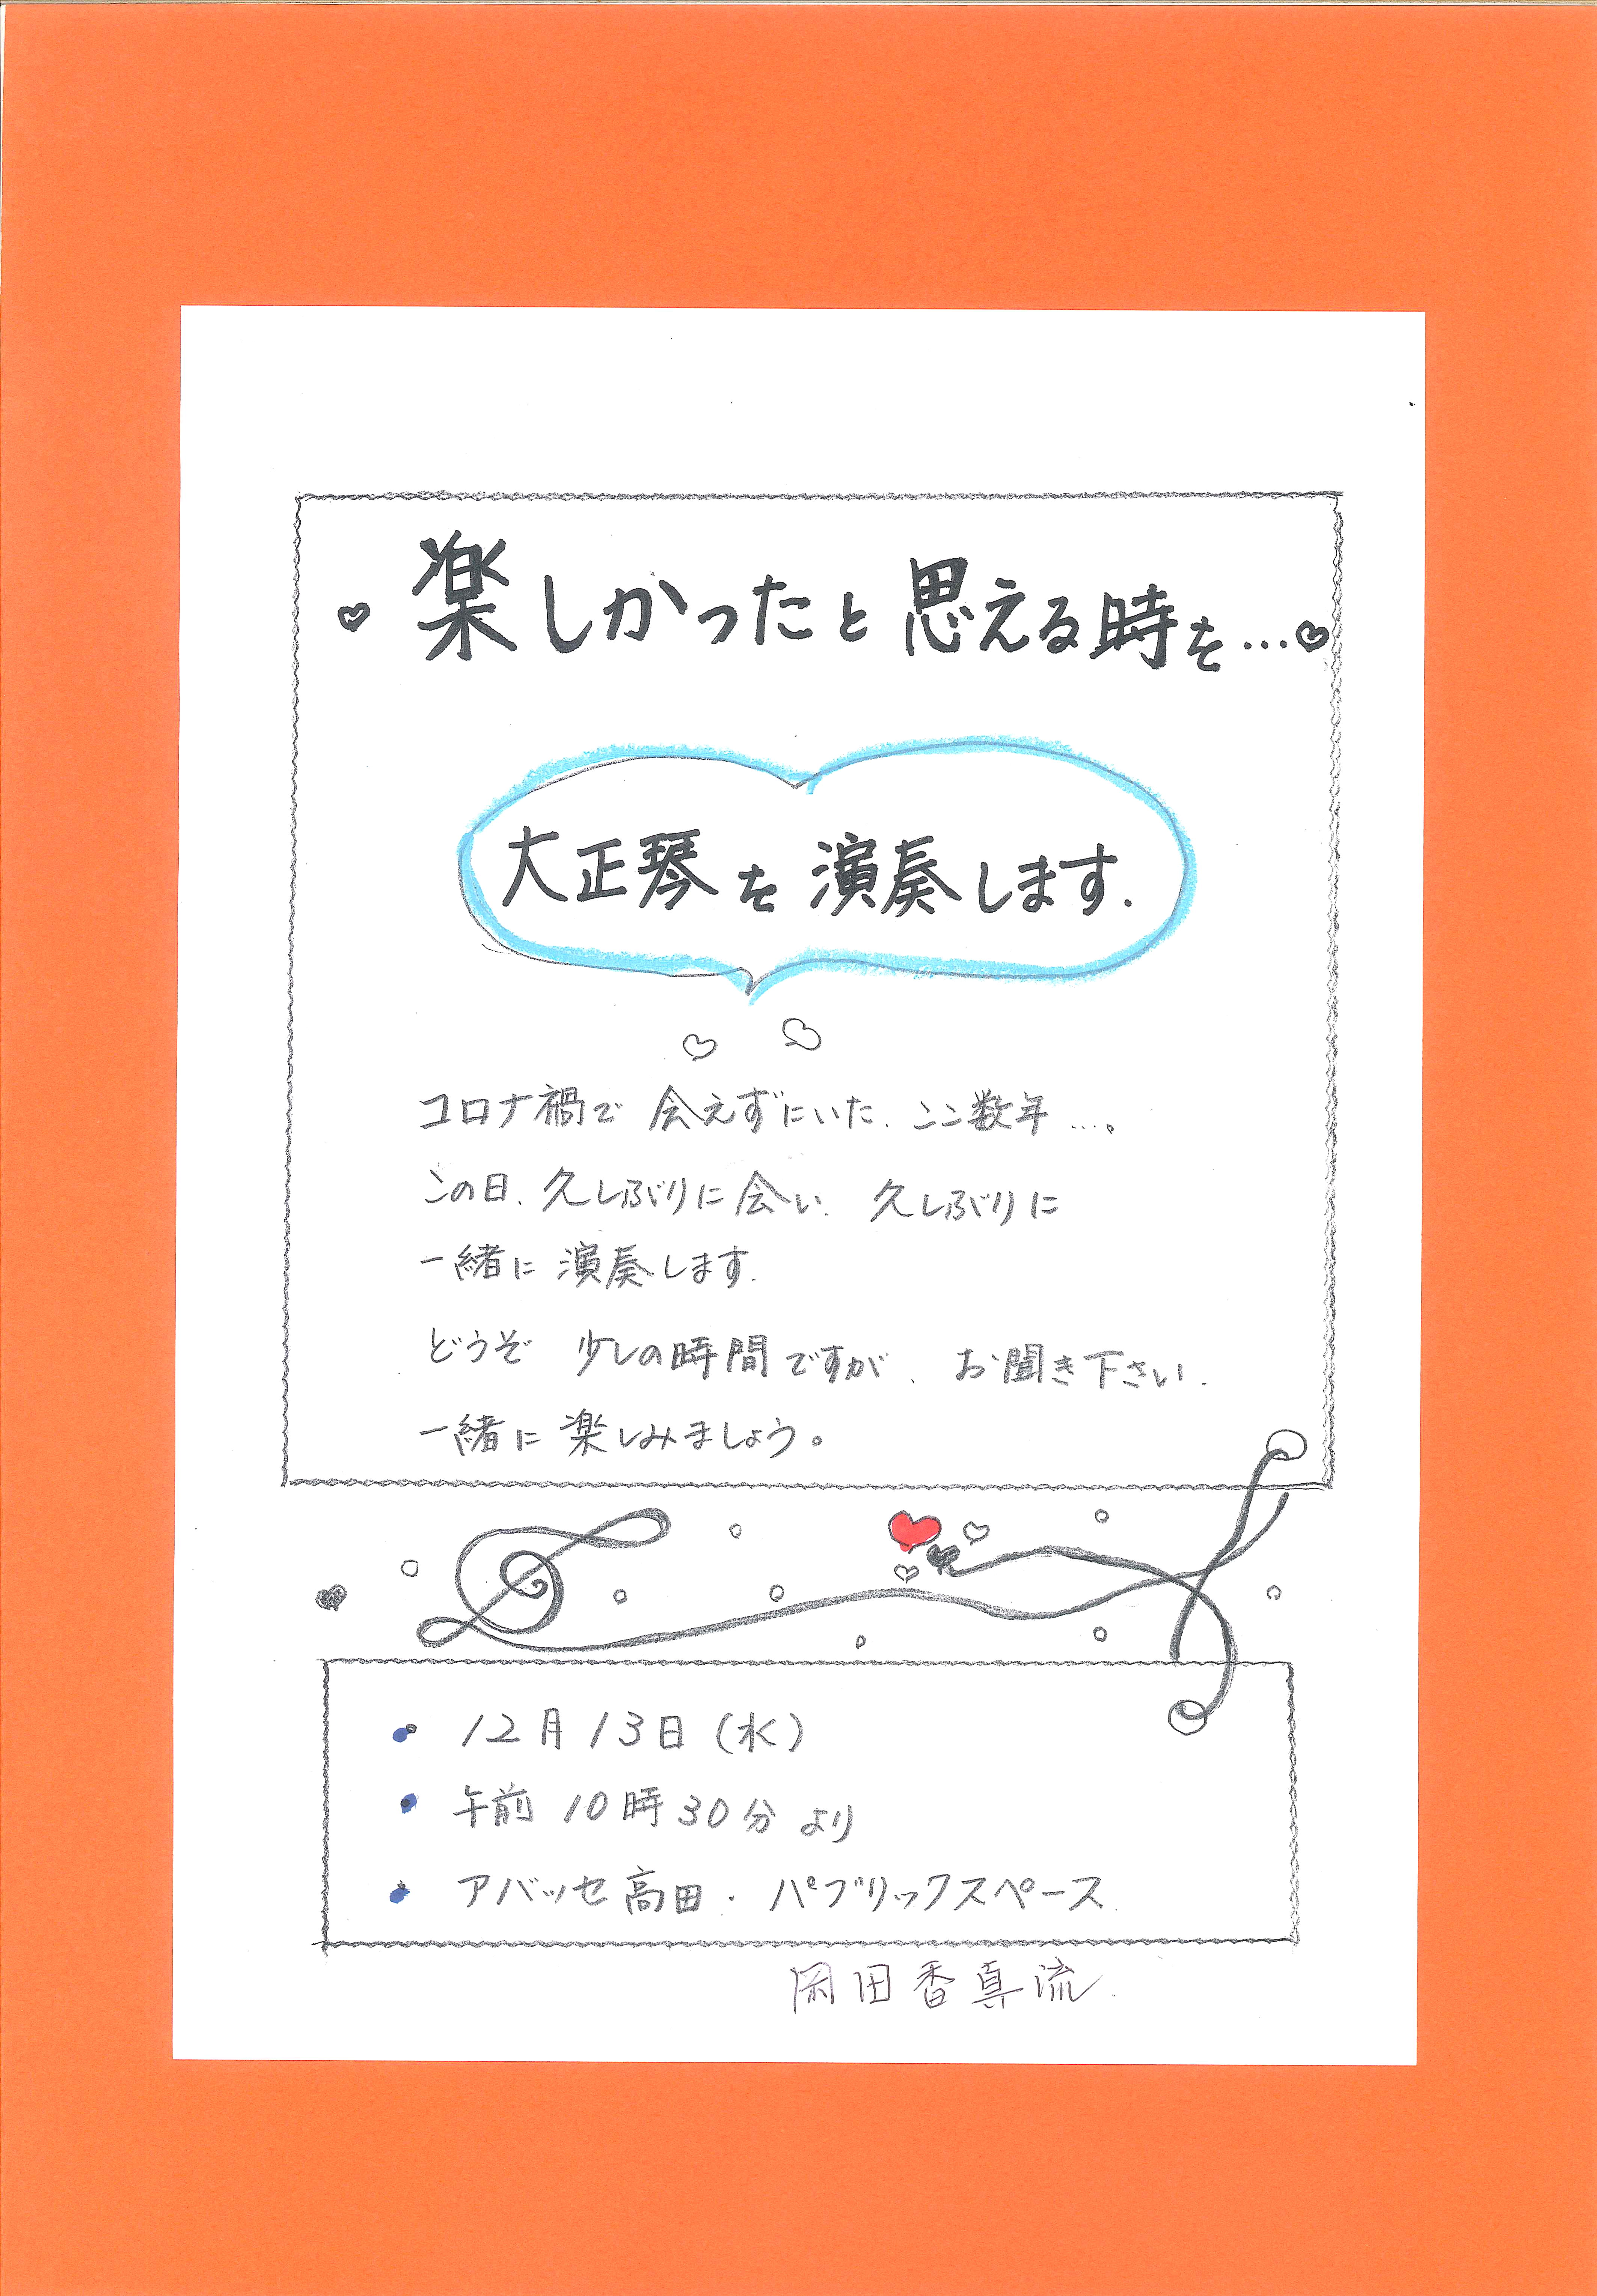 楽しかったと思える時を…
大正琴を演奏します.
コロナ禍で 会えずにいた. ここ数年….。
この日、久しぶりに会い、久しぶりに
一緒に 演奏します.
どうぞ 少しの時間ですが、お聞き下さい.
一緒に 楽しみましょう。
・12月13日(水)
・午前10時30分より
・アバッセ高田・パブリックスペース
岡田香真流.